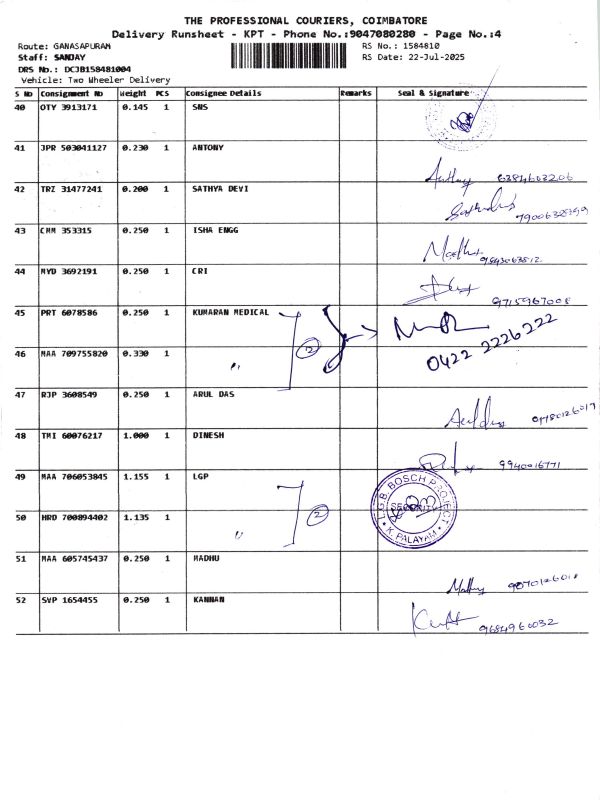 THE PROFESSIONAL COURIERS, COIMBATORE
Delivery Runsheet - KPT - Phone No.:9047080280 - Page No.:4
Route: GANASAPURAM RS No.: 1584810
Staff: SANJAY RS Date: 22-Jul-2025
DRS No.: DCJB158481004
Vehicle: Two Wheeler Delivery
S No Consignment No Weight PCS Consignee Details Remarks Seal & Signature
40 OTY 3913171 0.145 1 SNS
41 JPR 503041127 0.230 1 ANTONY
6384603206
42 TRZ 31477241 0.200 1 SATHYA DEVI
43 CMM 353315 0.250 1 ISHA ENGG
Madhu
44 MYD 3692191 0.250 1 CRI
9715967008
45 PRT 6078586 0.250 1 KUMARAN MEDICAL
0422 2226222
46 MAA 709755820 0.330 1 "
47 RJP 3608549 0.250 1 ARUL DAS
48 TMI 60076217 1.000 1 DINESH
9940016771
49 MAA 706053845 1.155 1 LGP
2
L.G.B. BOSCH PROJECT
SECURITY
K. PALAYAM
50 HRD 700894402 1.135 1 "
51 MAA 605745437 0.250 1 MADHU
Madhu
52 SVP 1654455 0.250 1 KANNAN
9684960032